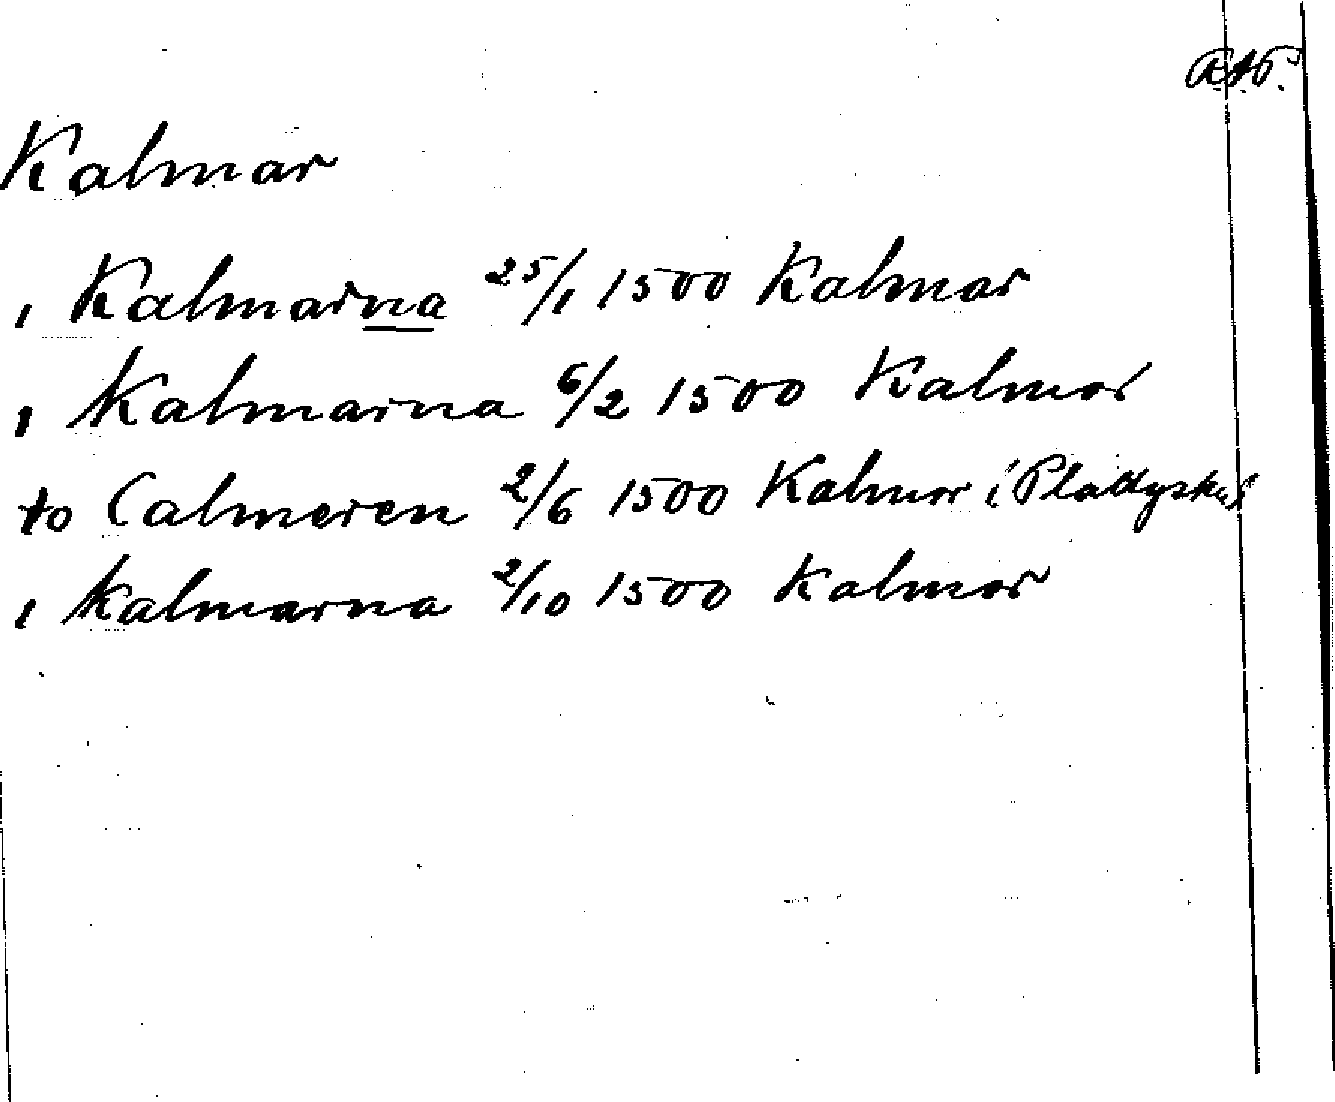 RAP.
Kalmar
i Kalmarna 25/1 1500 Kalmar
i Kalmarna 6/2 1500 Kalmar
to Calmeren 2/6 1500 Kalmar (Pladtyska)
i Kalmarna 2/10 1500 Kalmar